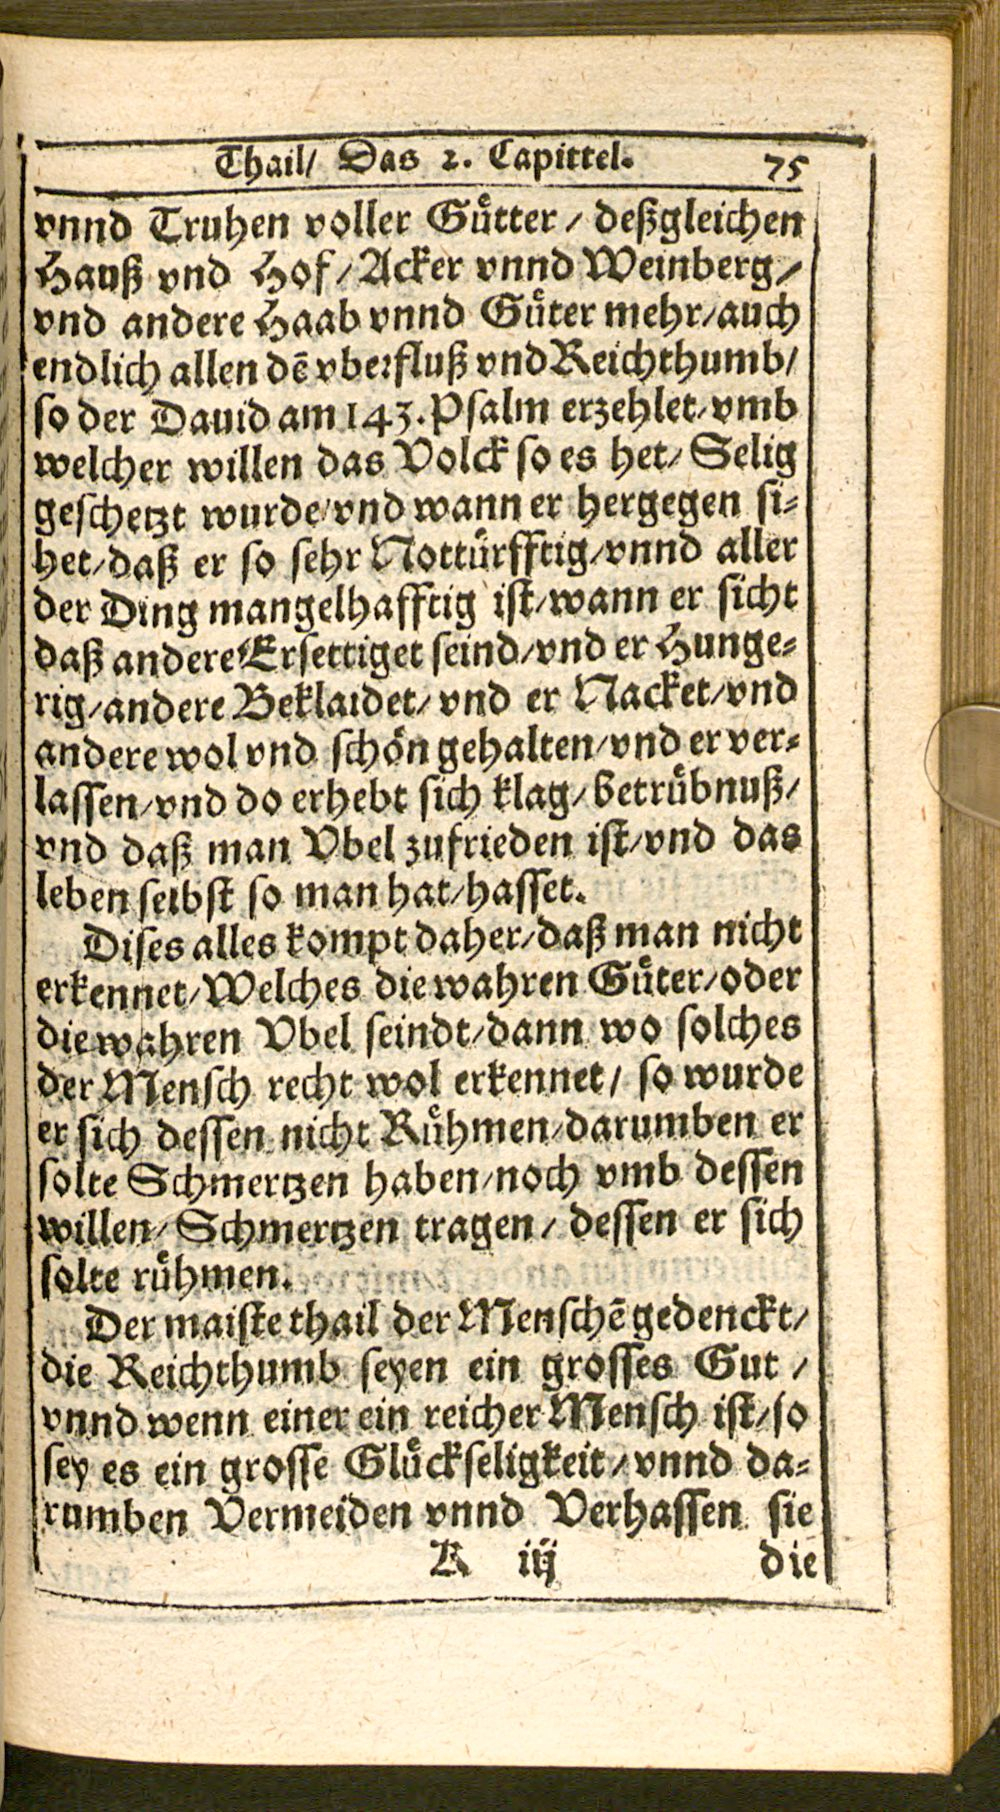 Thail/ Das 2. Capittel. 75
vnnd Truhen voller Guͤtter / deßgleichen
Hauß vnd Hof / Acker vnnd Weinberg /
vnd andere Haab vnnd Guͤter mehr / auch
endlich allen dē vberfluß vnd Reichthumb /
so der Dauid am 143. Psalm erzehlet / vmb
welcher willen das Volck so es het / Selig
geschetzt wurde / vnd wann er hergegen si-
het / daß er so sehr Nottürfftig / vnnd aller
der Ding mangelhafftig ist / wann er sicht
daß andere Ersettiget seind / vnd er Hunge-
rig / andere Beklaidet / vnd er Nacket / vnd
andere wol vnd schoͤn gehalten / vnd er ver-
lassen / vnd do erhebt sich klag / betruͤbnuß /
vnd daß man Vbel zufrieden ist / vnd das
leben selbst so man hat / hasset.
Dises alles kompt daher / daß man nicht
erkennet / Welches die wahren Guͤter / oder
die wahren Vbel seindt / dann wo solches
der Mensch recht wol erkennet / so wurde
er sich dessen nicht Ruͤhmen / darumben er
solte Schmertzen haben / noch vmb dessen
willen / Schmertzen tragen / dessen er sich
solte ruͤhmen.
Der maiste thail der Menschē gedenckt /
die Reichthumb seyen ein grosses Gut /
vnnd wenn einer ein reicher Mensch ist / so
sey es ein grosse Gluͤckseligkeit / vnnd da-
rumben Vermeiden vnnd Verhassen sie
K iij die